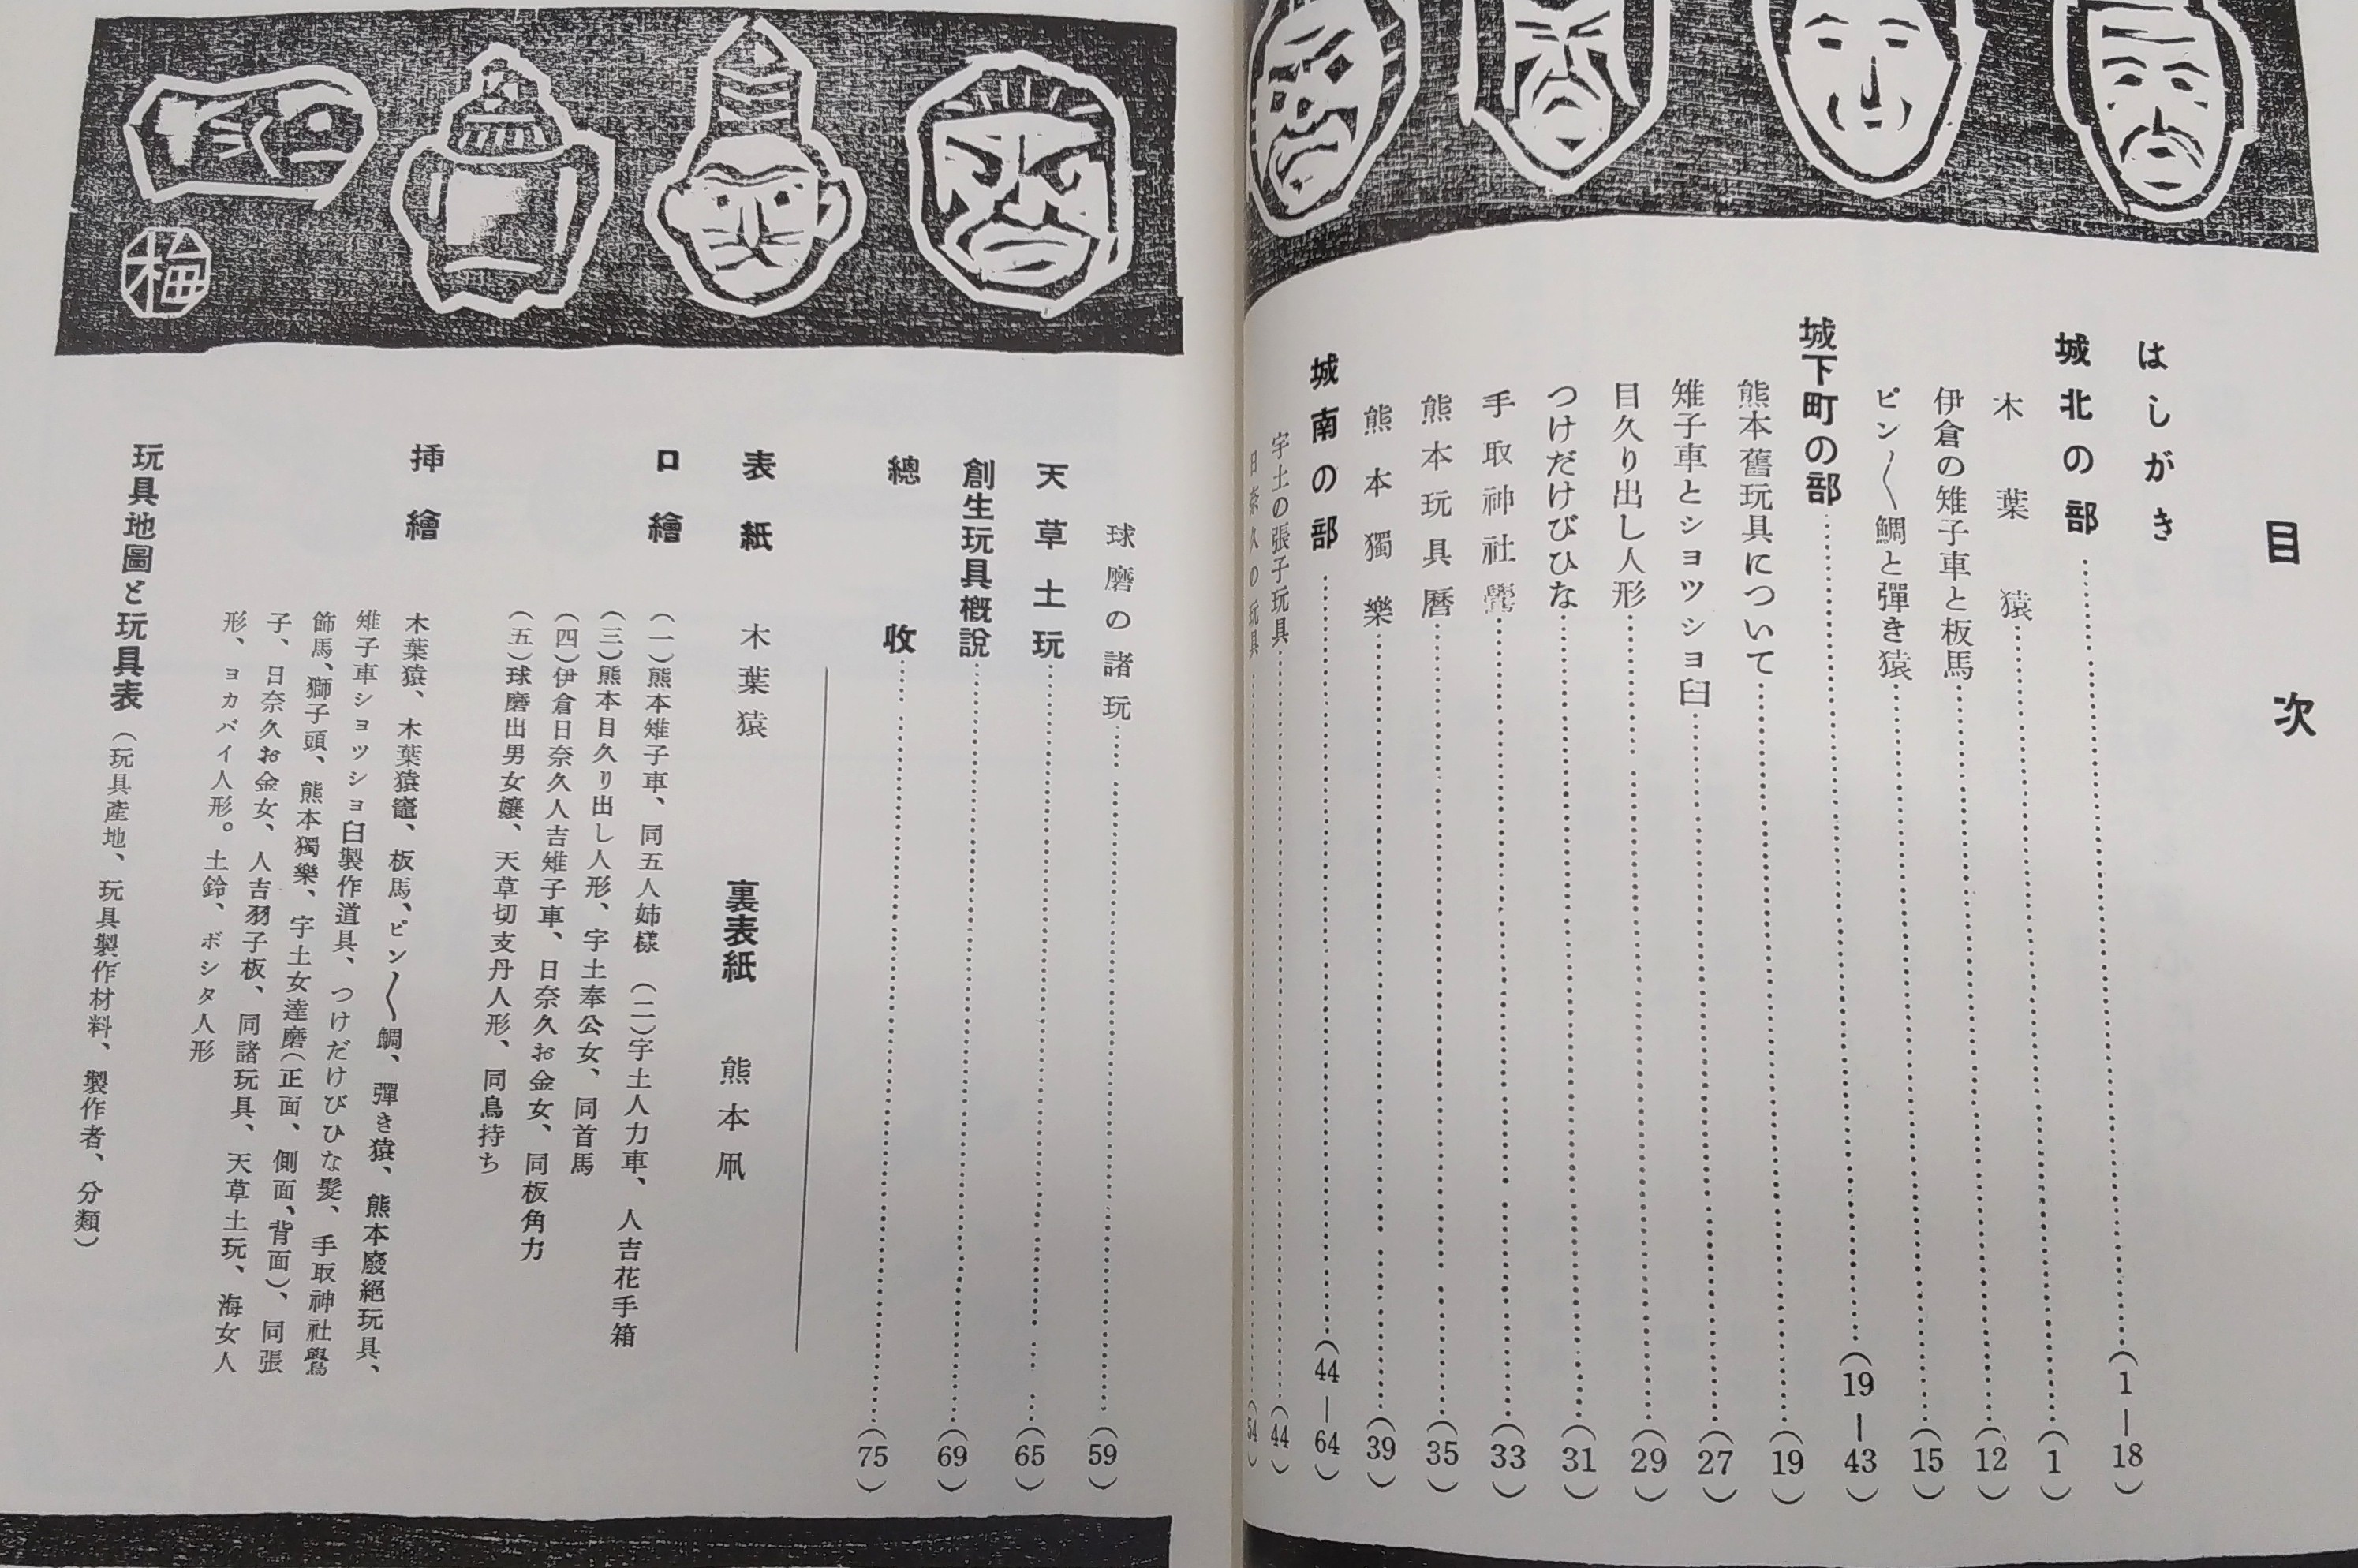 目次
はしがき
城北の部 (1—18)
木葉猿 (1)
伊倉の雉子車と板馬 (12)
ピン〳〵鯛と彈き猿 (15)
城下町の部 (19—43)
熊本舊玩具について (19)
雉子車とショツショ臼 (27)
目久り出し人形 (29)
つけだけびひな (31)
手取神社鷽 (33)
熊本玩具曆 (35)
熊本獨樂 (39)
城南の部 (44—64)
宇土の張子玩具 (44)
日奈久の玩具 (54)
球磨の諸玩 (59)
天草土玩 (65)
創生玩具槪說 (69)
總收 (75)
表紙 木葉猿 裏表紙 熊本凧
口繪 (一)熊本雉子車、同五人姉樣 (二)宇土人力車、人吉花手箱
(三)熊本目久り出し人形、宇土奉公女、同首馬
(四)伊倉日奈久人吉雉子車、日奈久お金女、同板角力
(五)球磨出男女嬢、天草切支丹人形、同鳥持ち
挿繪 木葉猿、木葉猿竈、板馬、ピン〳〵鯛、彈き猿、熊本廢絕玩具、
雉子車ショツショ臼製作道具、つけだけびひな髮、手取神社鷽
飾馬、獅子頭、熊本獨樂、宇土女達磨(正面、側面、背面)、同張
子、日奈久お金女、人吉羽子板、同諸玩具、天草土玩、海女人
形、ヨカバイ人形。土鈴、ボシタ人形
玩具地圖と玩具表 (玩具產地、玩具製作材料、製作者、分類)
梅